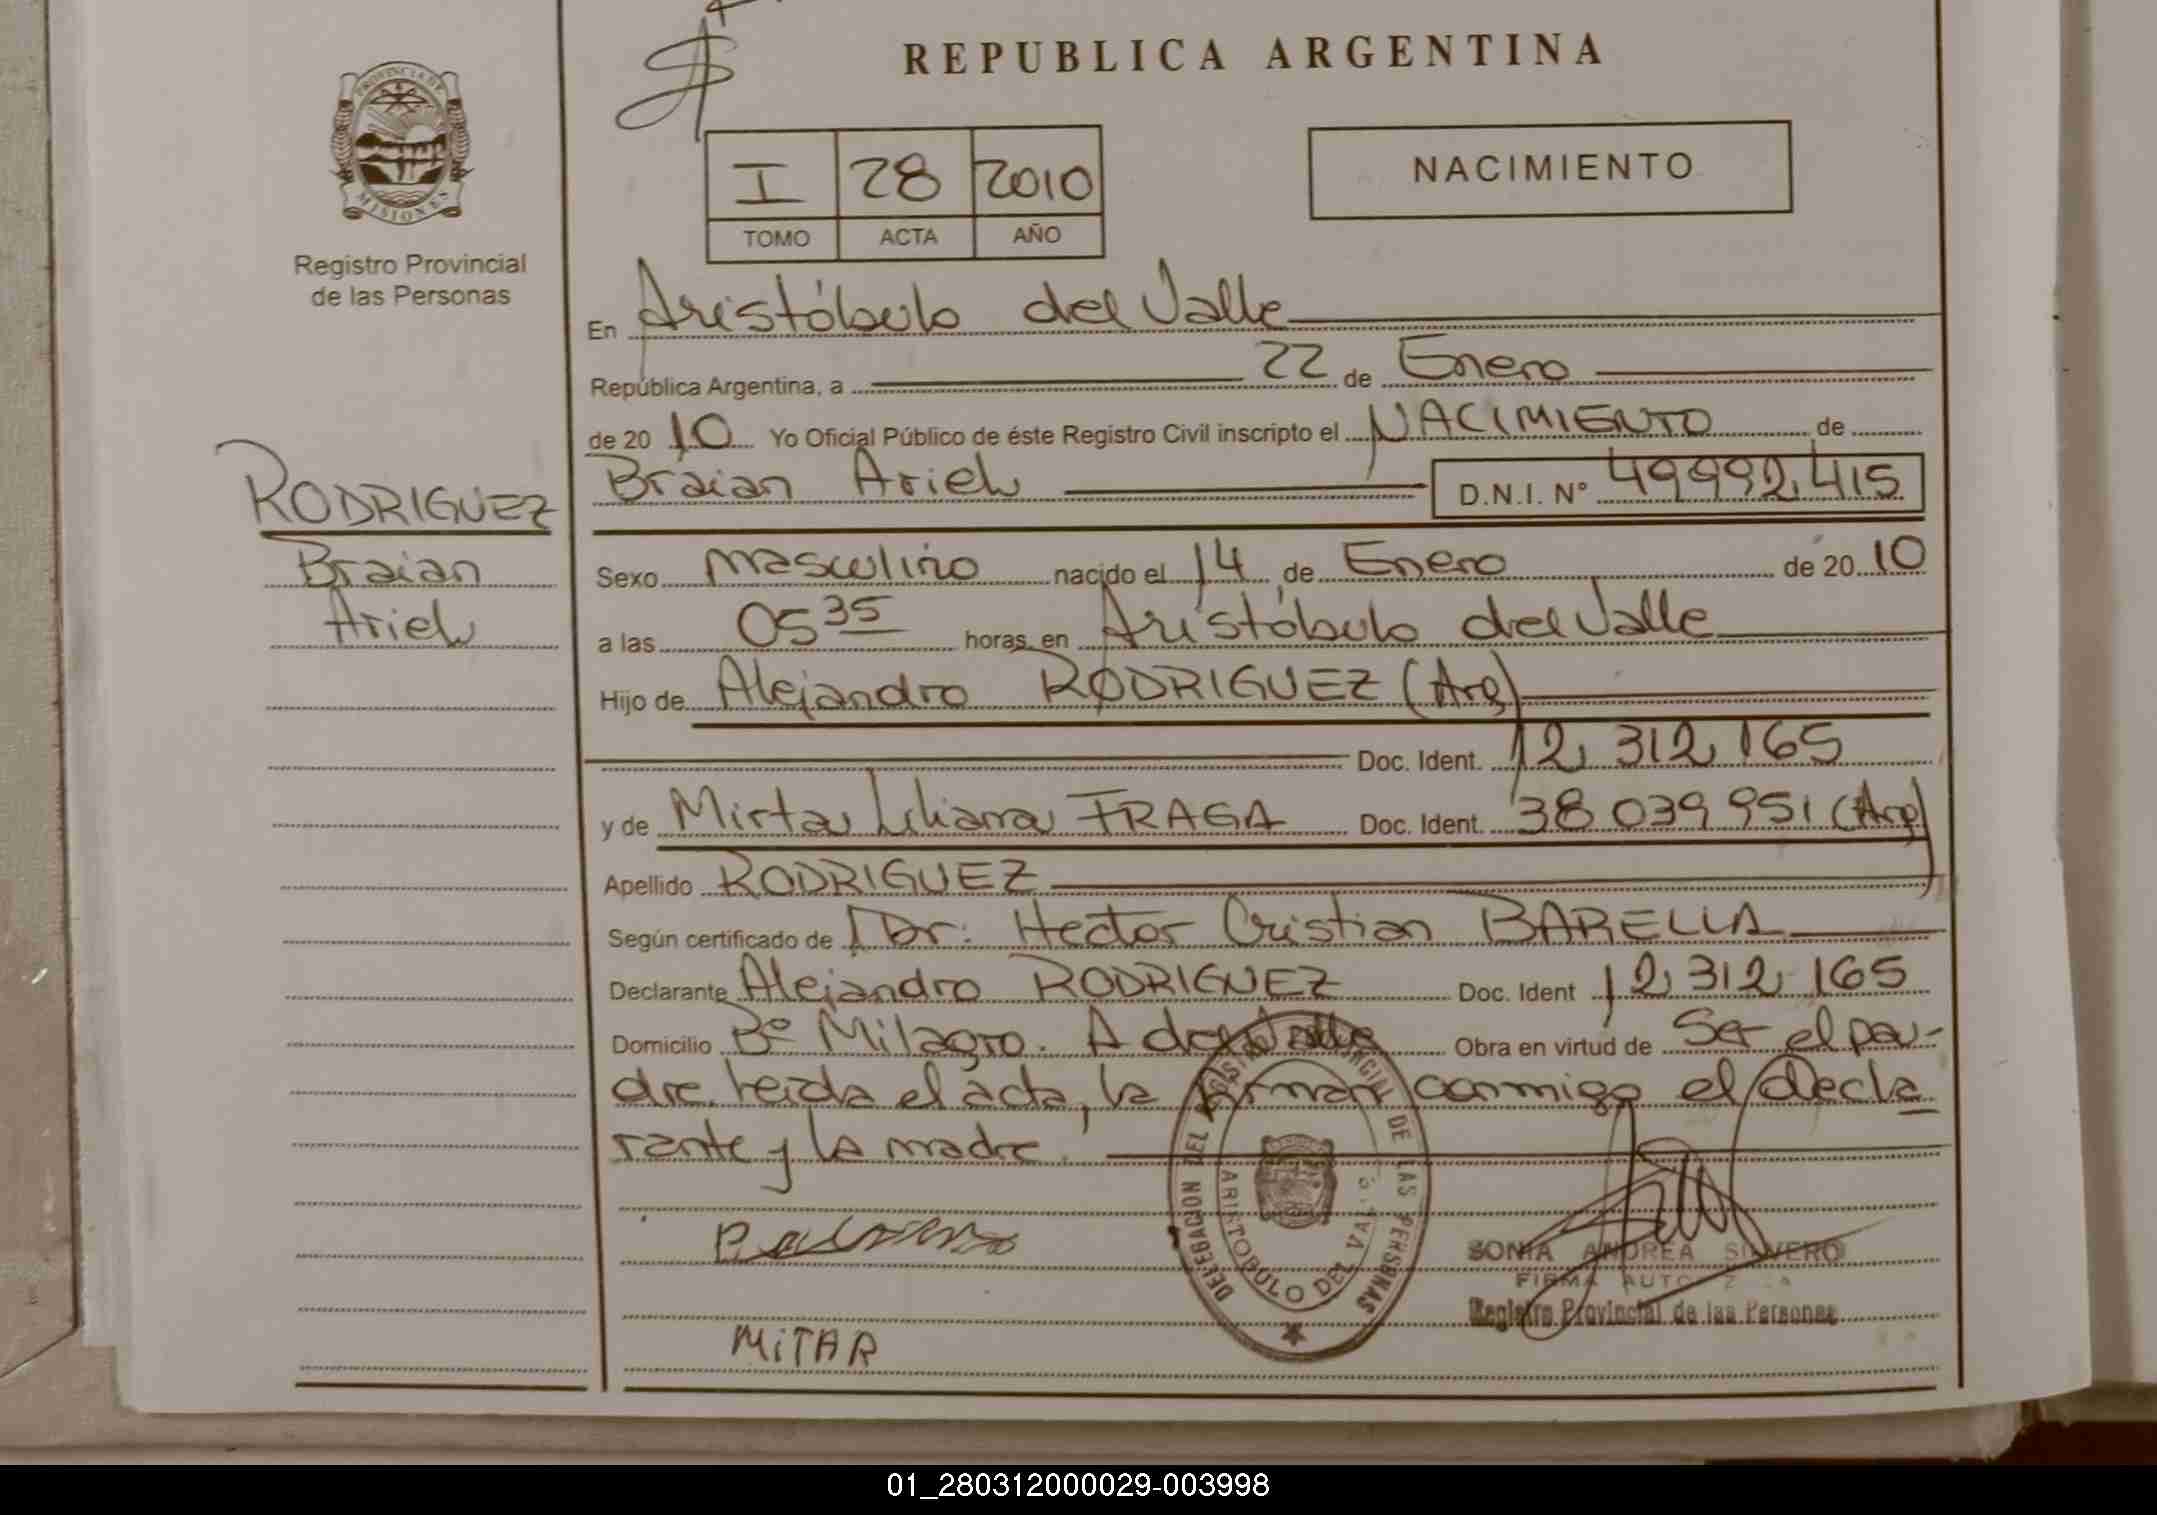 REPUBLICA ARGENTINA
PROVINCIA DE
MISIONES
Registro Provincial
de las Personas
I 28 2010
TOMO ACTA AÑO
NACIMIENTO
En Aristóbulo del Valle
República Argentina, a 22 de Enero
de 20 10 Yo Oficial Público de éste Registro Civil inscripto el NACIMIENTO de
Braian Ariel D.N.I. N° 49992.415
RODRIGUEZ
Braian
Ariel
Sexo masculino nacido el 14 de Enero de 20 10
a las 05 35 horas, en Aristóbulo del Valle
Hijo de Alejandro RODRIGUEZ (Arg)
Doc. Ident. 12.312.165
y de Mirta Liliana FRAGA Doc. Ident. 38 039 951 (Arg)
Apellido RODRIGUEZ
Según certificado de Dr. Hector Cristian BARELLA
Declarante Alejandro RODRIGUEZ Doc. Ident 12.312.165
Domicilio B° Milagro. A del Valle Obra en virtud de Ser el pa-
dre. Leida el acta, la firman conmigo el decla
rante y la madre.
DELEGACION DEL REGISTRO PROVINCIAL DE LAS PERSONAS
ARISTOBULO DEL VALLE
SONIA ANDREA SILVERO
FIRMA AUTORIZADA
Registro Provincial de las Personas
MiTAR
01_280312000029-003998